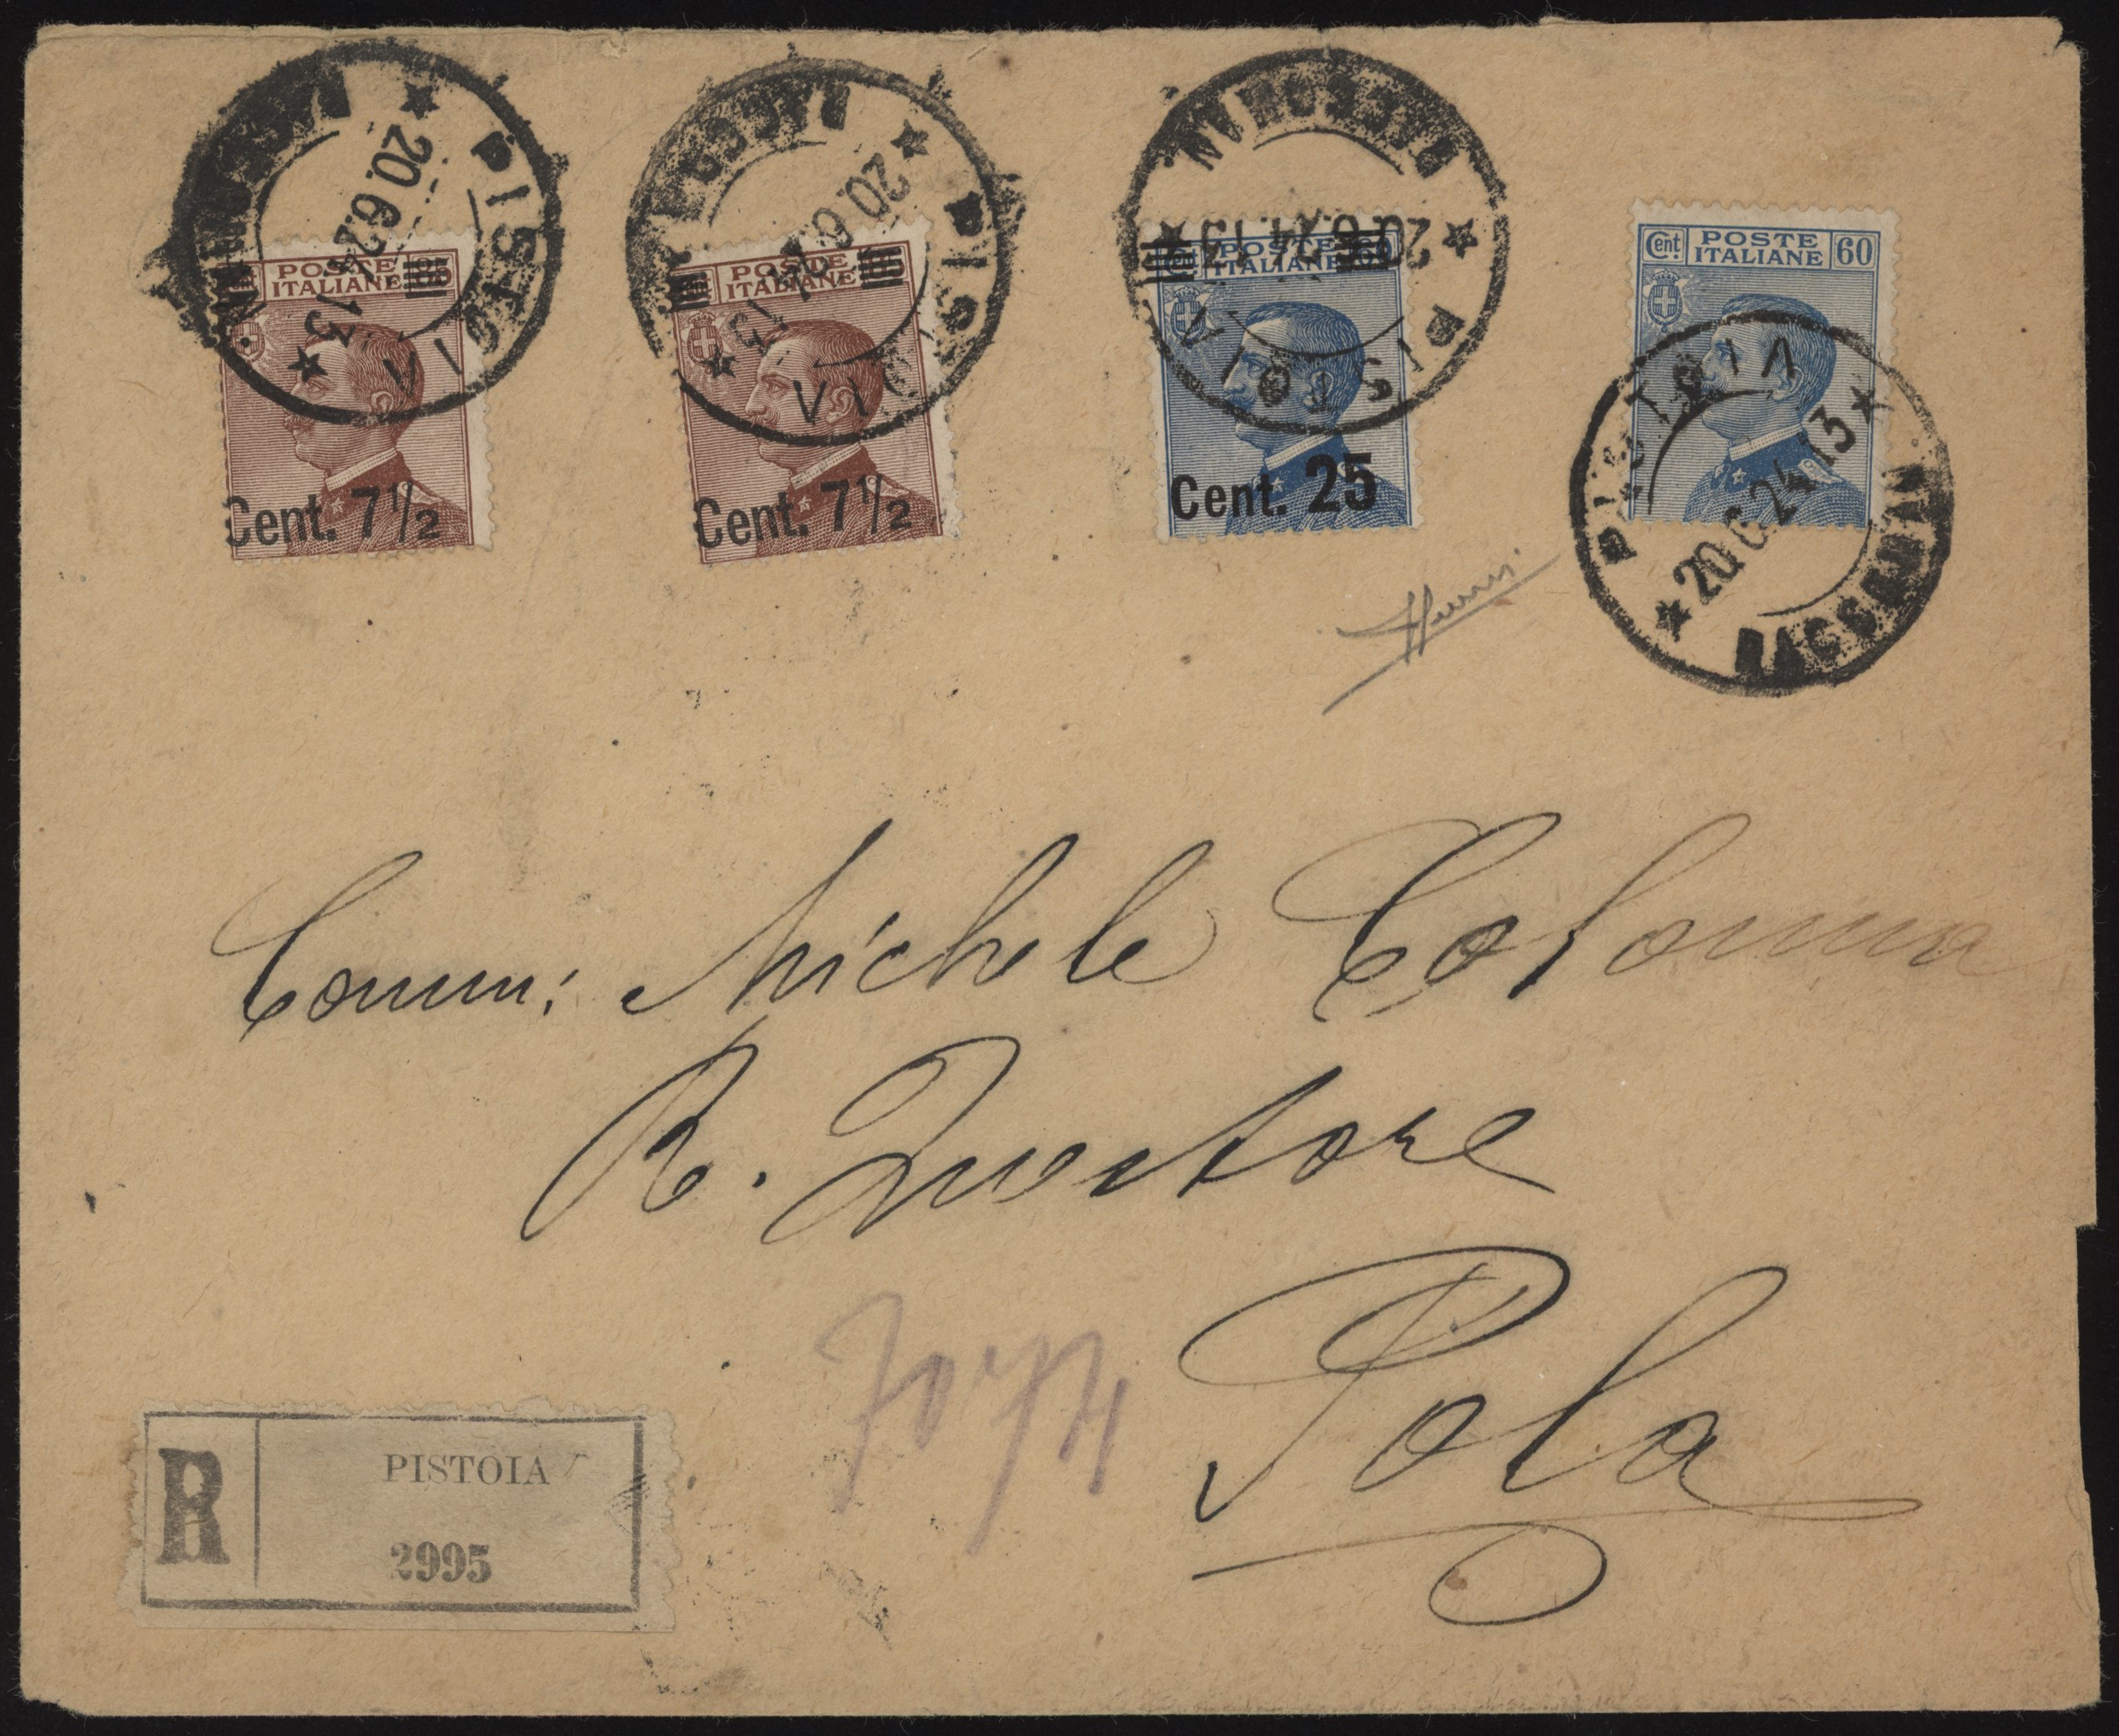 PISTOIA
20.6.24.13
POSTE
ITALIANE 85
Cent. 7½
PISTOIA
20.6.24.13
POSTE
ITALIANE
Cent. 7½
PISTOIA
RACCOMAN.
20.6.24.13
POSTE
Cent ITALIANE 60
Cent. 25
POSTE
Cent. ITALIANE 60
PISTOIA
20.6.24.13
RACCOMAN.
Comm: Michele Colonna
R. Questore
Pola
R PISTOIA
2995